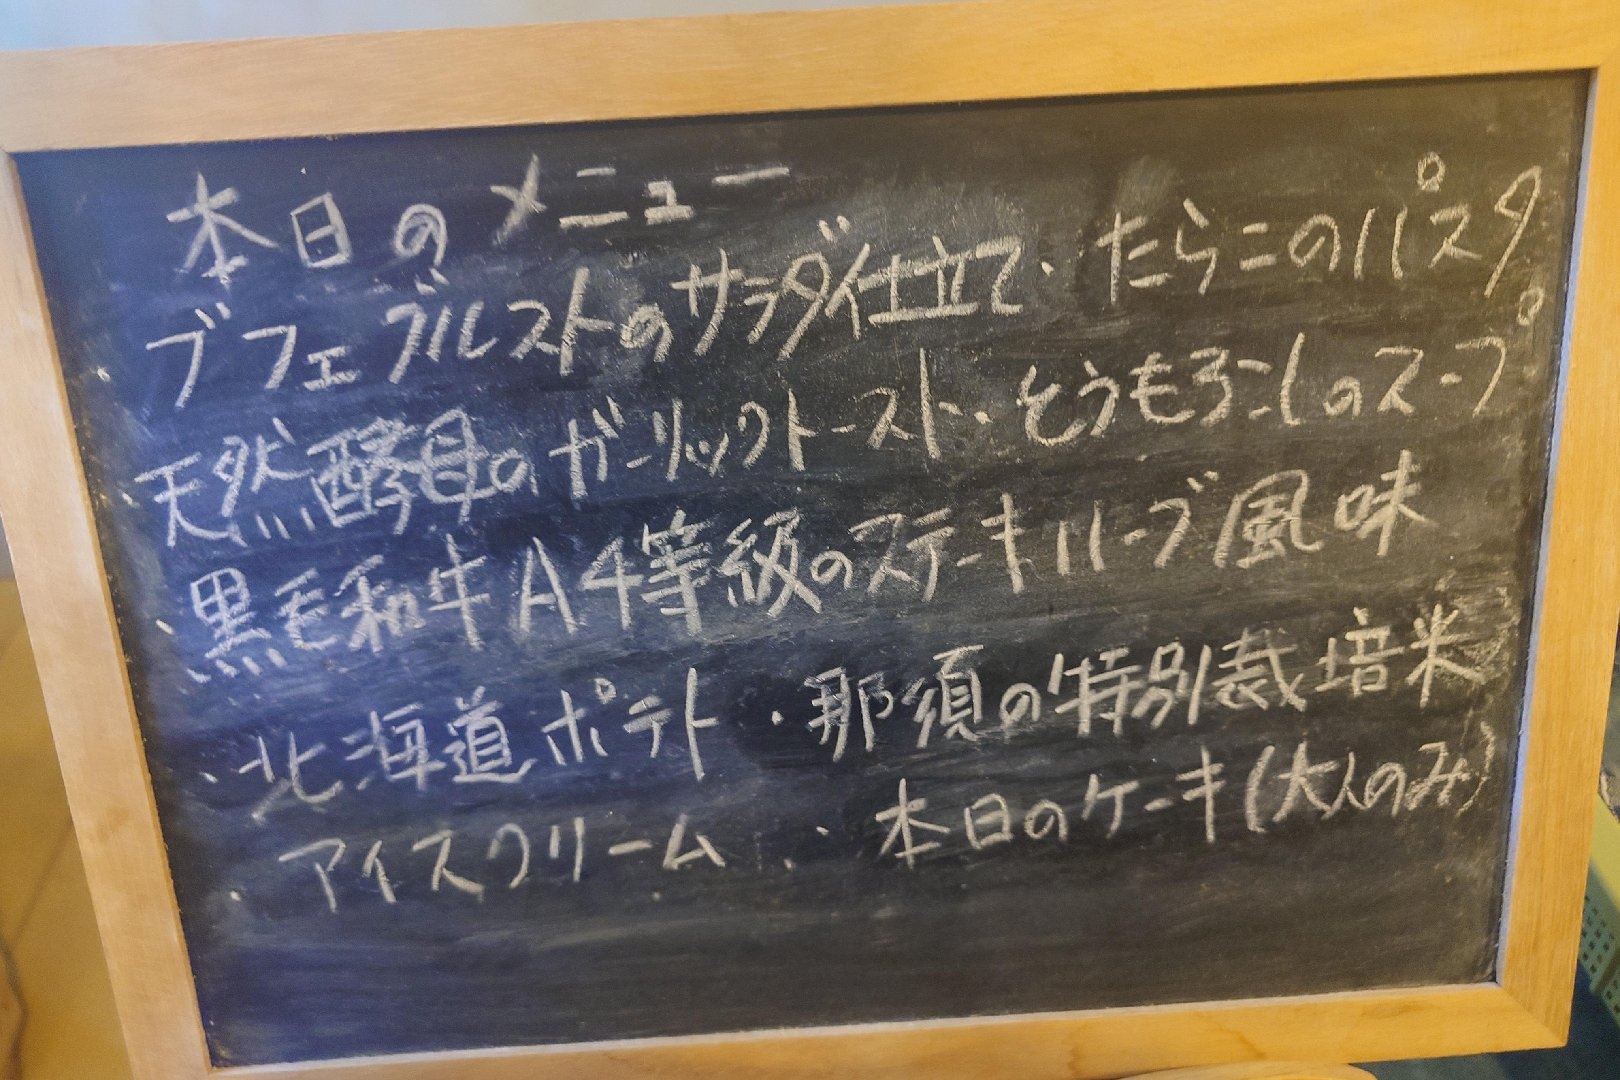 本日のメニュー
ブフェブルストのサラダ仕立て・たらこのパスタ
・天然酵母のガーリックトースト・とうもろこしのスープ
・黒毛和牛A4等級のステーキハーブ風味
・北海道ポテト・那須の特別栽培米
・アイスクリーム・本日のケーキ(大人のみ)